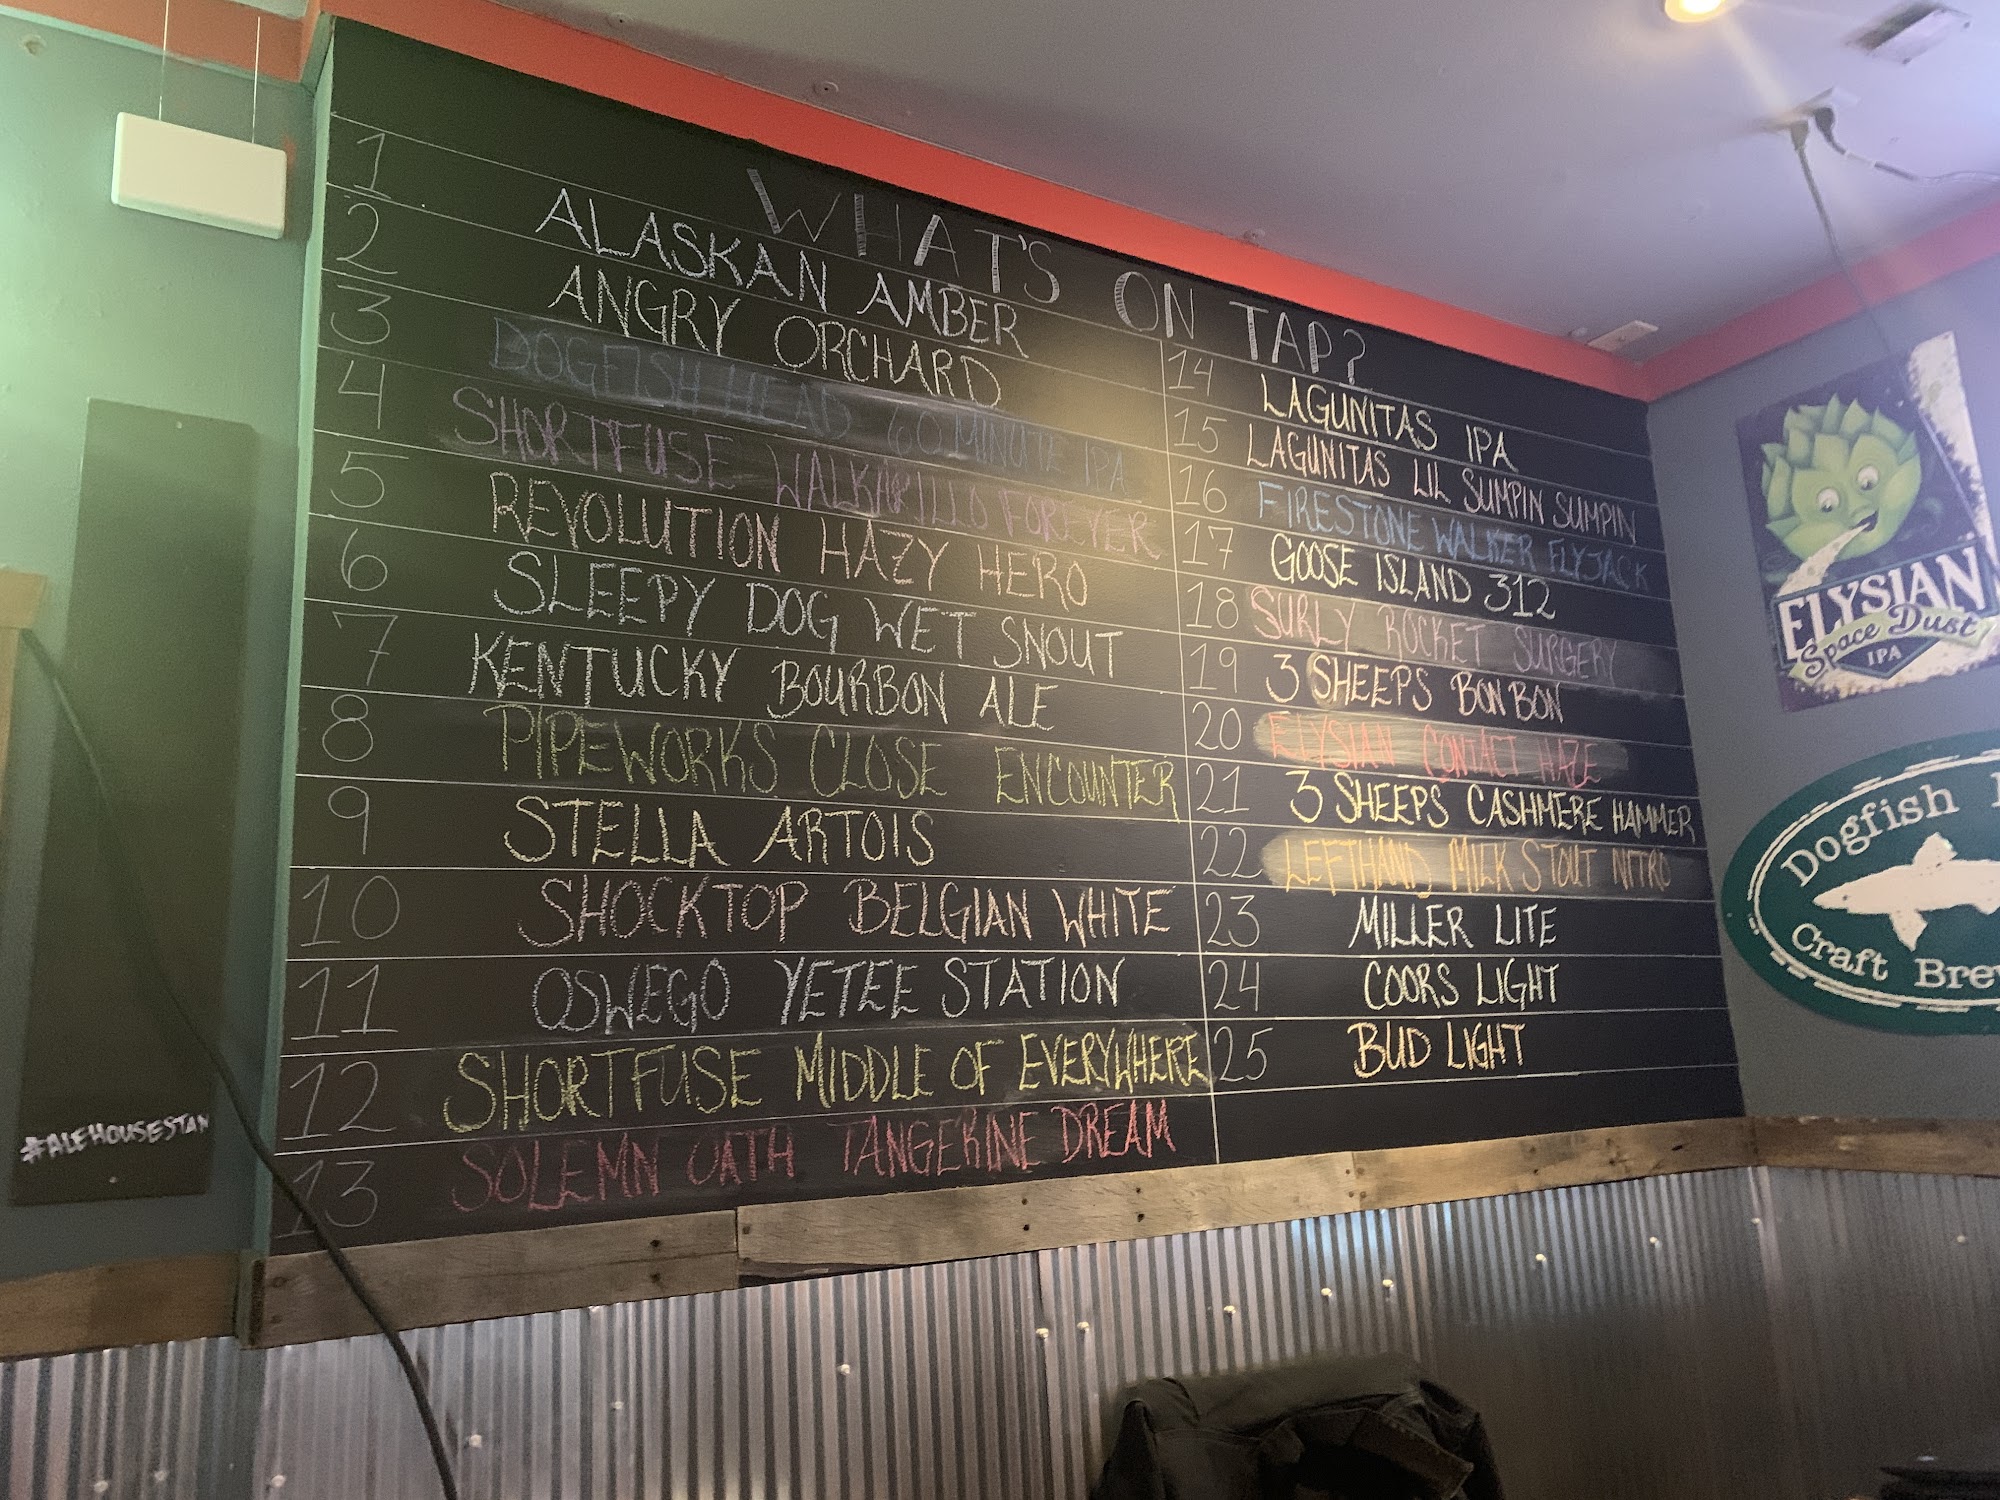 WHAT'S ON TAP?
1 ALASKAN AMBER
2 ANGRY ORCHARD
3 DOGFISH HEAD 60 MINUTE IPA
4 SHORTFUSE FOREVER
5 REVOLUTION HAZY HERO
6 SLEEPY DOG WET SNOUT
7 KENTUCKY BOURBON ALE
8 PIPEWORKS CLOSE ENCOUNTER
9 STELLA ARTOIS
10 SHOCKTOP BELGIAN WHITE
11 OSWEGO YETEE STATION
12 SHORTFUSE MIDDLE OF EVERYWHERE
13 SOLEMN OATH TANGERINE DREAM
14 LAGUNITAS IPA
15 LAGUNITAS LIL SUMPIN SUMPIN
16 FIRESTONE WALKER FLYJACK
17 GOOSE ISLAND 312
18 SURLY ROCKET SURGERY
19 3 SHEEPS BON BON
20 ELYSIAN CONTACT HAZE
21 3 SHEEPS CASHMERE HAMMER
22 LEFTHAND MILK STOUT NITRO
23 MILLER LITE
24 COORS LIGHT
25 BUD LIGHT
#ALEHOUSESTAN
ELYSIAN
Space Dust
IPA
Dogfish
Craft Brew